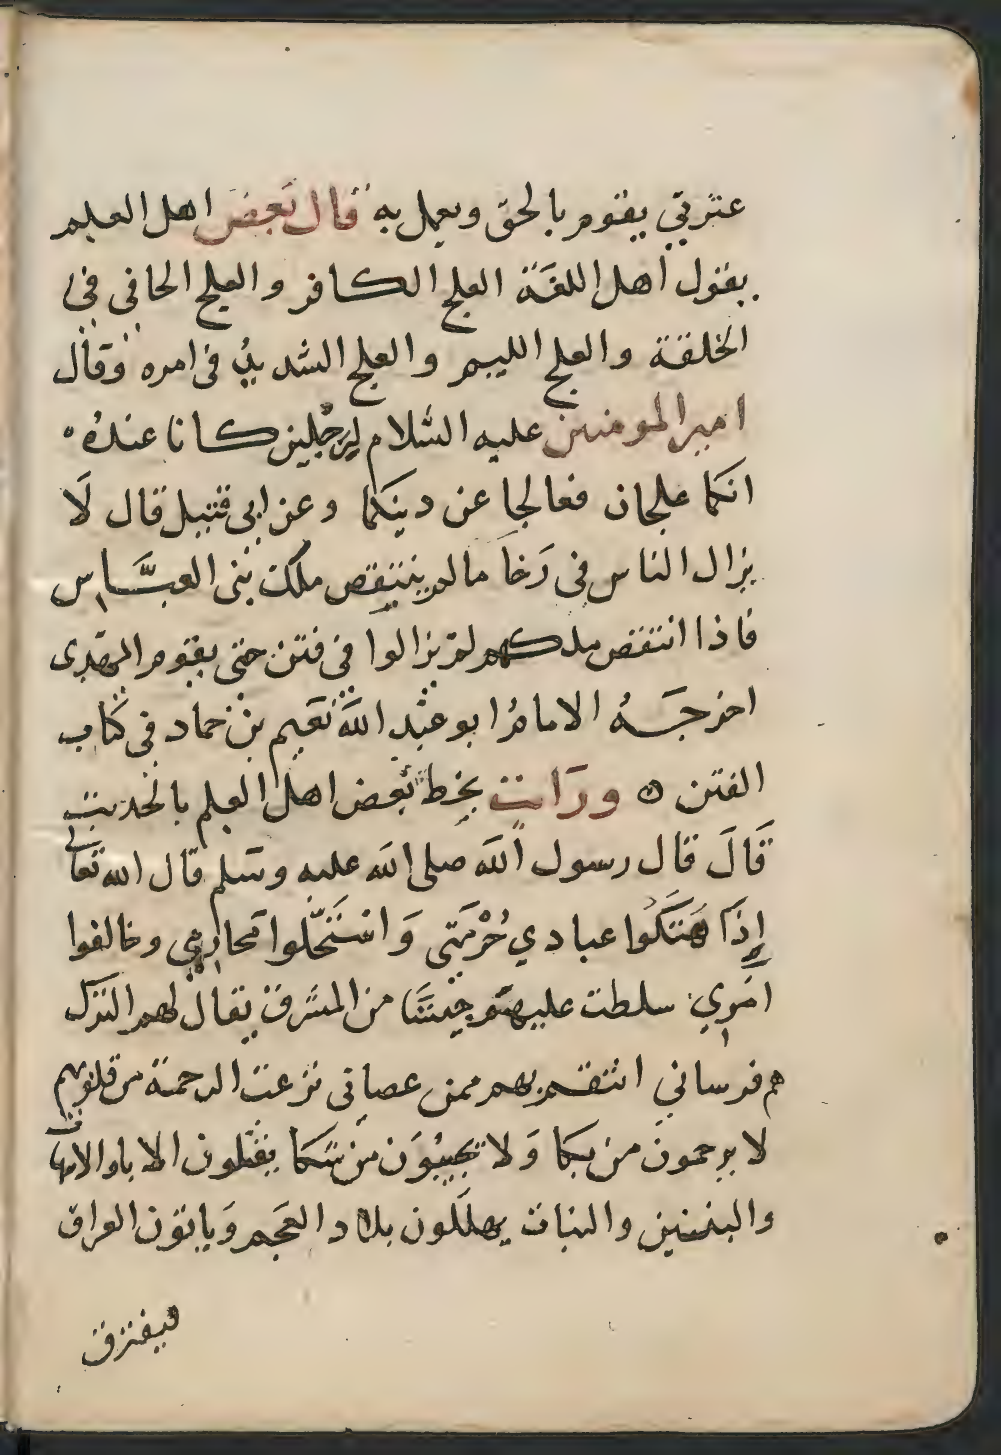 عترتي يقوم بالحق ويعمل به قال بعض اهل العلم
يقول اهل اللغة العلج الكافر والعلج الجافي في
الخلقة والعلج الليم والعلج الشديد في امره وقال
امير المومنين عليه السلام لرجلين كانا عنده
انكما علجان فعالجا عن دينكما وعن ابي قتيل قال لَا
يزال الناس في رَخا مالم ينتقص ملك بني العبَّاس
فاذا انتقص ملكهم لم يزالوا في فتن حتى يقوم المهدى
اخرجَهُ الامامُ ابو عبد الله نعيم بن حماد في كتاب
الفتن ورَايت بخط بعض اهل العلم بالحديث
قَالَ قال رسول الله صلى الله عليه وسلم قال الله تعالى
إِذَا هَتَكُوا عبادي حُرْمَتي وَاسْتَحَلّوا مَحارِمي وخالفوا
امْرِي سلطت عليهم جيشًا من المشرق يقال لهم الترك
هم فرساني انتقم بهم ممن عصاني نزعت الرحمة من قلوبهم
لا يرحمون من بكا وَلا يجيبُوَن من شكا يقتلون الابا والامهات
والبنين والبنات يهلكون بلاد العَجم وَياتون العراق
فيفترق